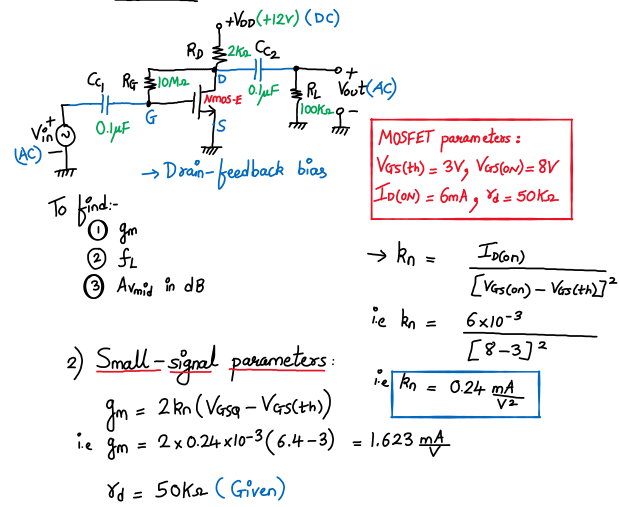 +VDD (+12V) (DC)
RD 2KΩ CC2
D 0.1μF
CC1 RG 10MΩ
NMOS-E
+ Vout (AC) -
RL 100KΩ
0.1μF G S
+ Vin ~ -
(AC)
→ Drain-feedback bias
MOSFET parameters:
VGS(th) = 3V, VGS(ON) = 8V
ID(ON) = 6mA, rd = 50KΩ
To find:-
① gm
② fL
③ Avmid in dB
→ kn = ID(on) / [VGS(on) - VGS(th)]²
i.e kn = 6×10⁻³ / [8-3]²
i.e kn = 0.24 mA/V²
2) Small-signal parameters:
gm = 2kn (VGSQ - VGS(th))
i.e gm = 2 × 0.24 ×10⁻³ (6.4-3) = 1.623 mA/V
rd = 50KΩ (Given)